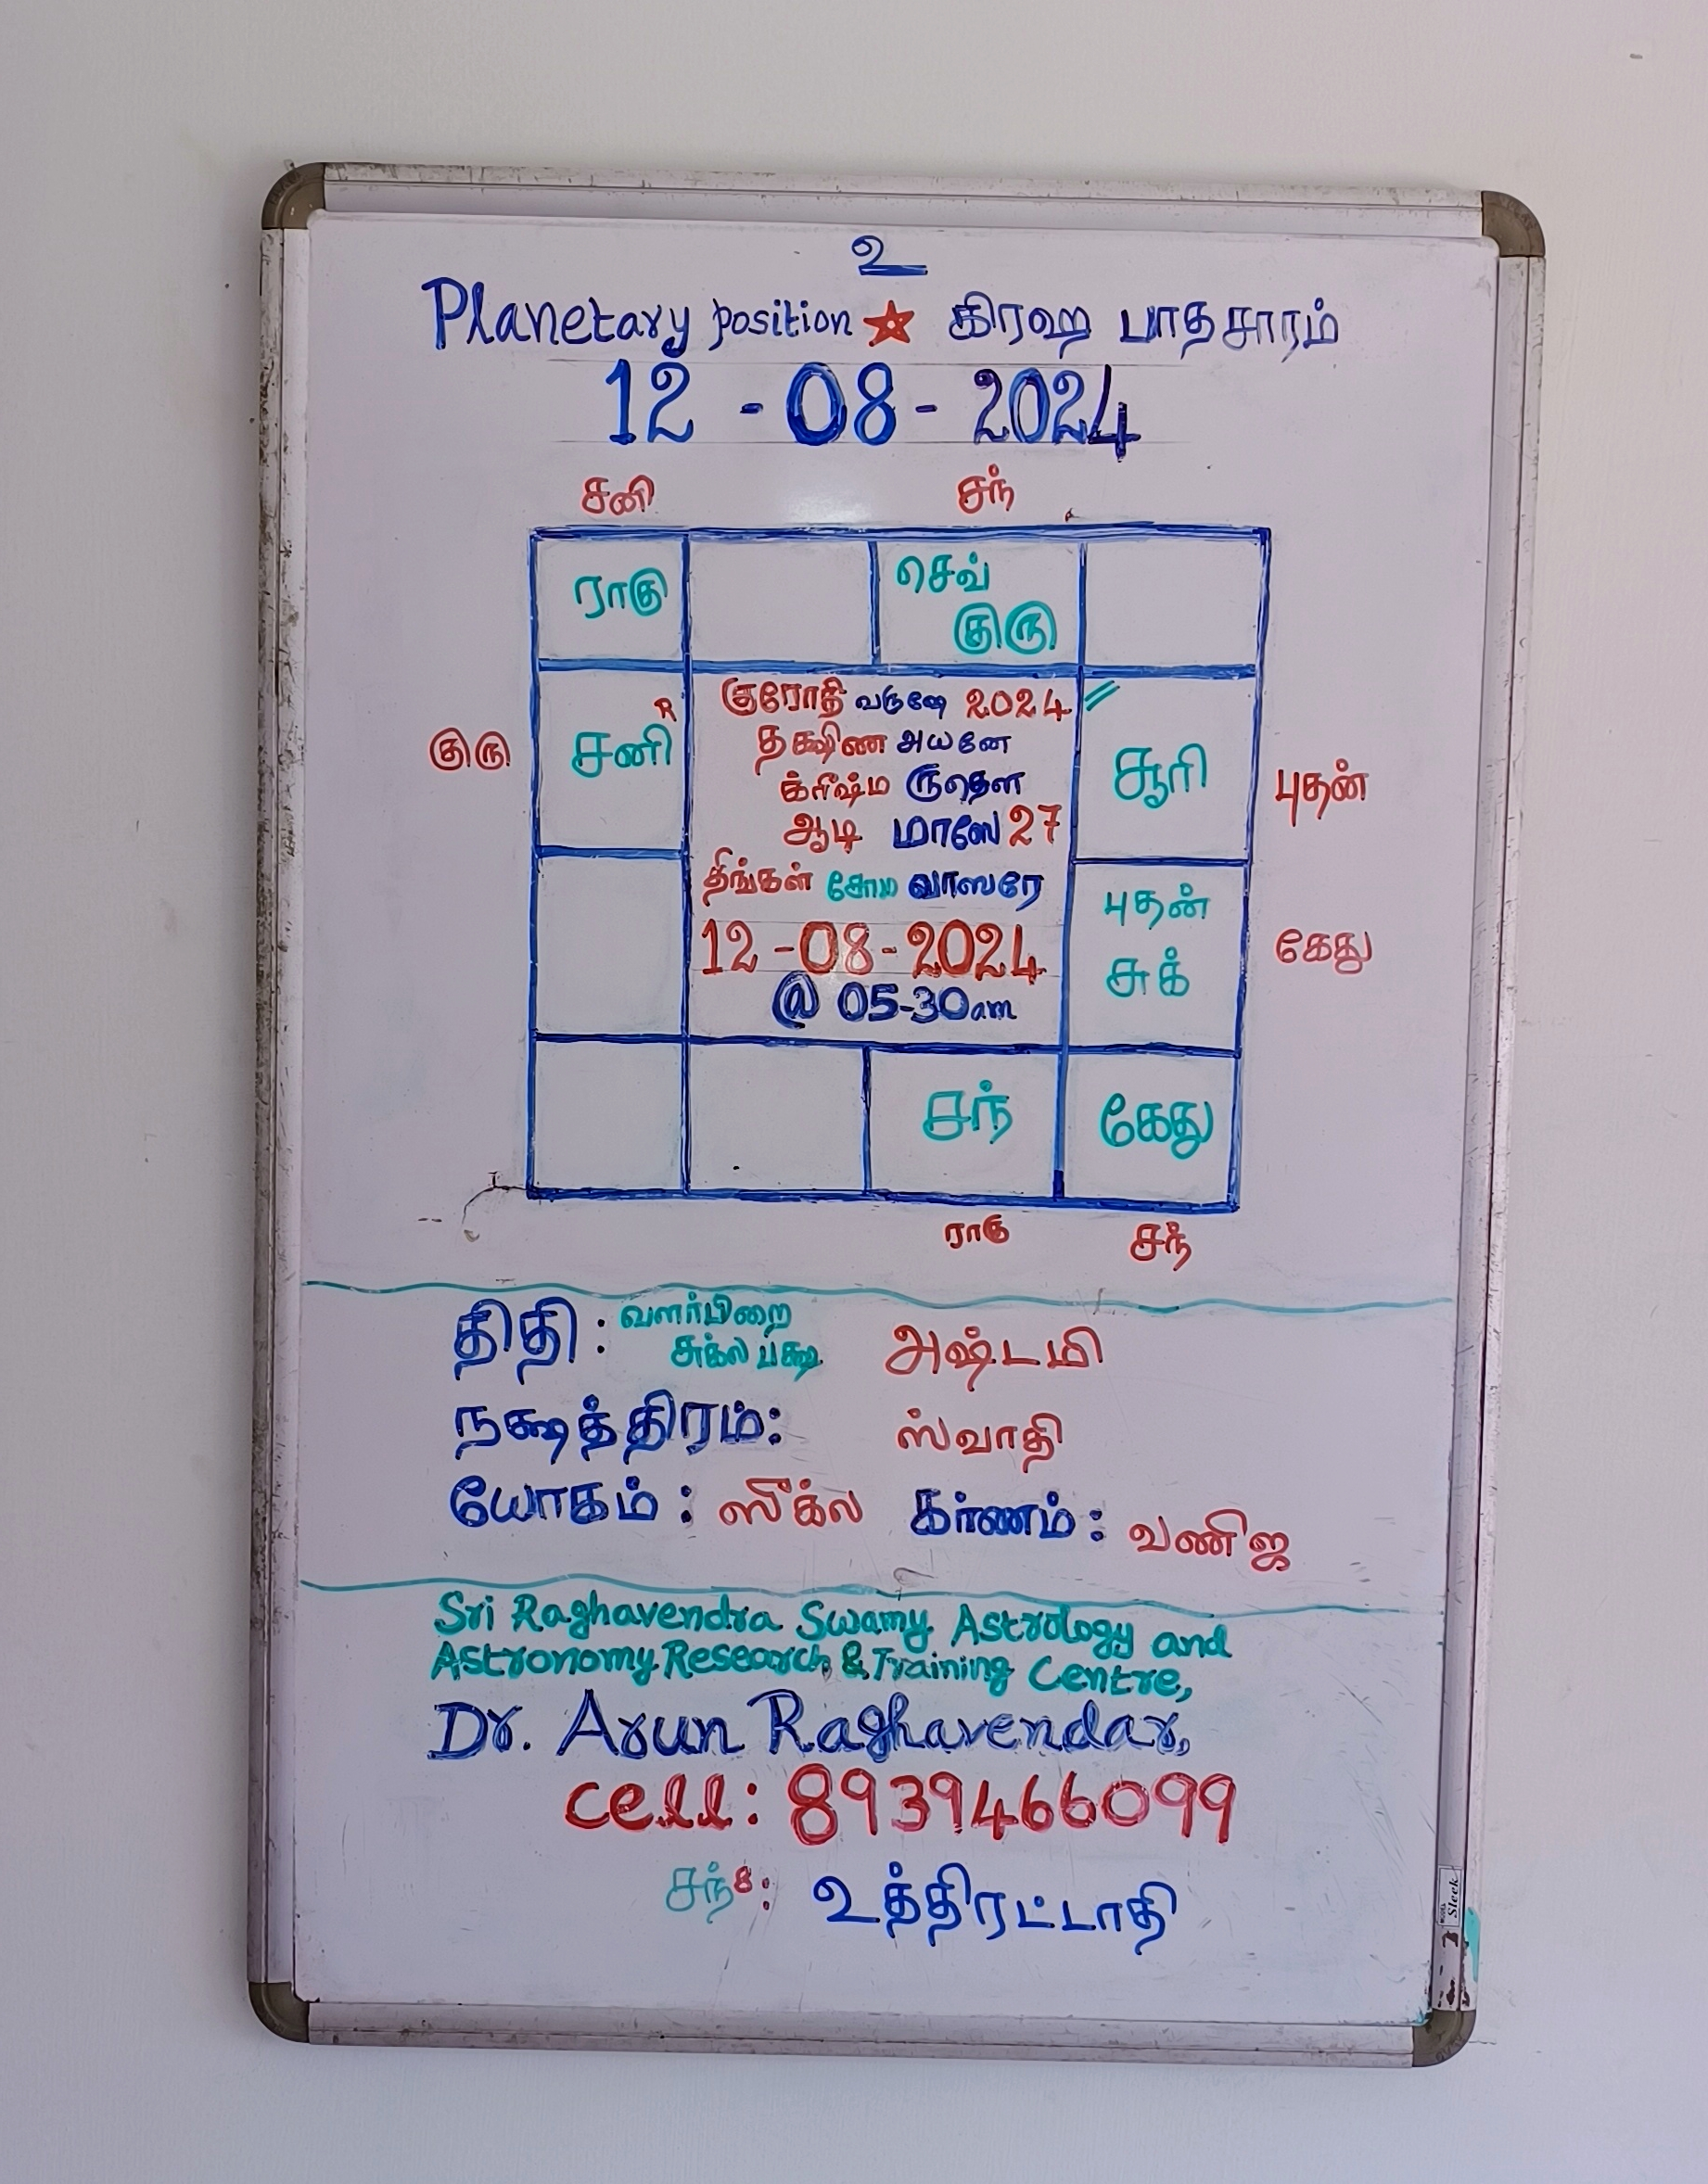 உ
Planetary position ★ கிரஹ பாதசாரம்
12 - 08 - 2024
சனி சந்
ராகு செவ்
குரு
குரோதி வருஷே 2024
R
குரு சனி தக்ஷிண அயனே சூரி புதன்
க்ரீஷ்ம ருதௌ
ஆடி மாஸே 27
திங்கள் சோம வாஸரே புதன்
12-08-2024 சுக் கேது
@ 05-30am
சந் கேது
ராகு சந்
திதி : வளர்பிறை
சுக்ல பக்ஷ அஷ்டமி
நக்ஷத்திரம்: ஸ்வாதி
யோகம் : ஸுக்ல கர்ணம் : வணிஜ
Sri Raghavendra Swamy Astrology and
Astronomy Research & Training Centre,
Dr. Arun Raghavendar,
cell: 8939466099
சந் 8: உத்திரட்டாதி
Sleek